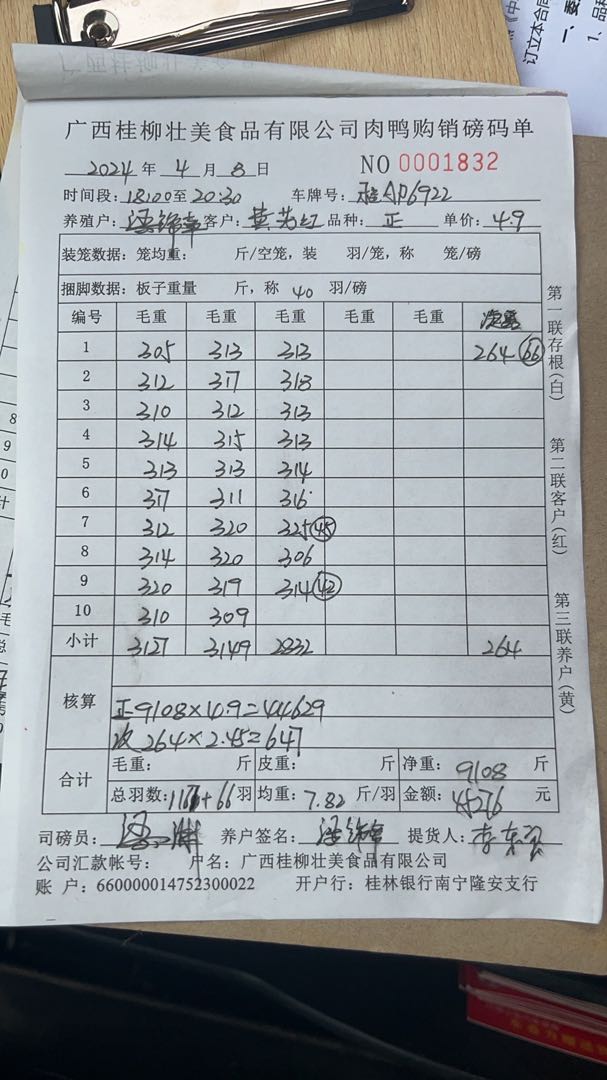 广西桂柳壮美食品有限公司肉鸭购销磅码单
2024 年 4 月 8 日 NO 0001832
时间段: 18:00至 20:30 车牌号: 桂AD6922
养殖户: 客户: 黄 品种: 正 单价: 4.9
装笼数据: 笼均重: 斤/空笼, 装 羽/笼, 称 笼/磅
捆脚数据: 板子重量 斤, 称 40 羽/磅
编号 毛重 毛重 毛重 毛重 毛重
1 305 313 313 264 66
2 312 317 318
3 310 312 313
4 314 315 313
5 313 313 314
6 317 311 316
7 312 320 325 45
8 314 320 306
9 320 319 314 42
10 310 309
小计 3127 3149 2832 264
核算
正9108×4.9=44629
次264×2.45=647
合计 毛重: 斤 皮重: 斤 净重: 9108 斤
总羽数: +66 羽 均重: 7.82 斤/羽 金额: 45276 元
司磅员: 养户签名: 提货人:
公司汇款帐号: 户名: 广西桂柳壮美食品有限公司
账 户: 660000014752300022 开户行: 桂林银行南宁隆安支行
第一联存根(白)
第二联客户(红)
第三联养户(黄)
订立本合同
1、品种